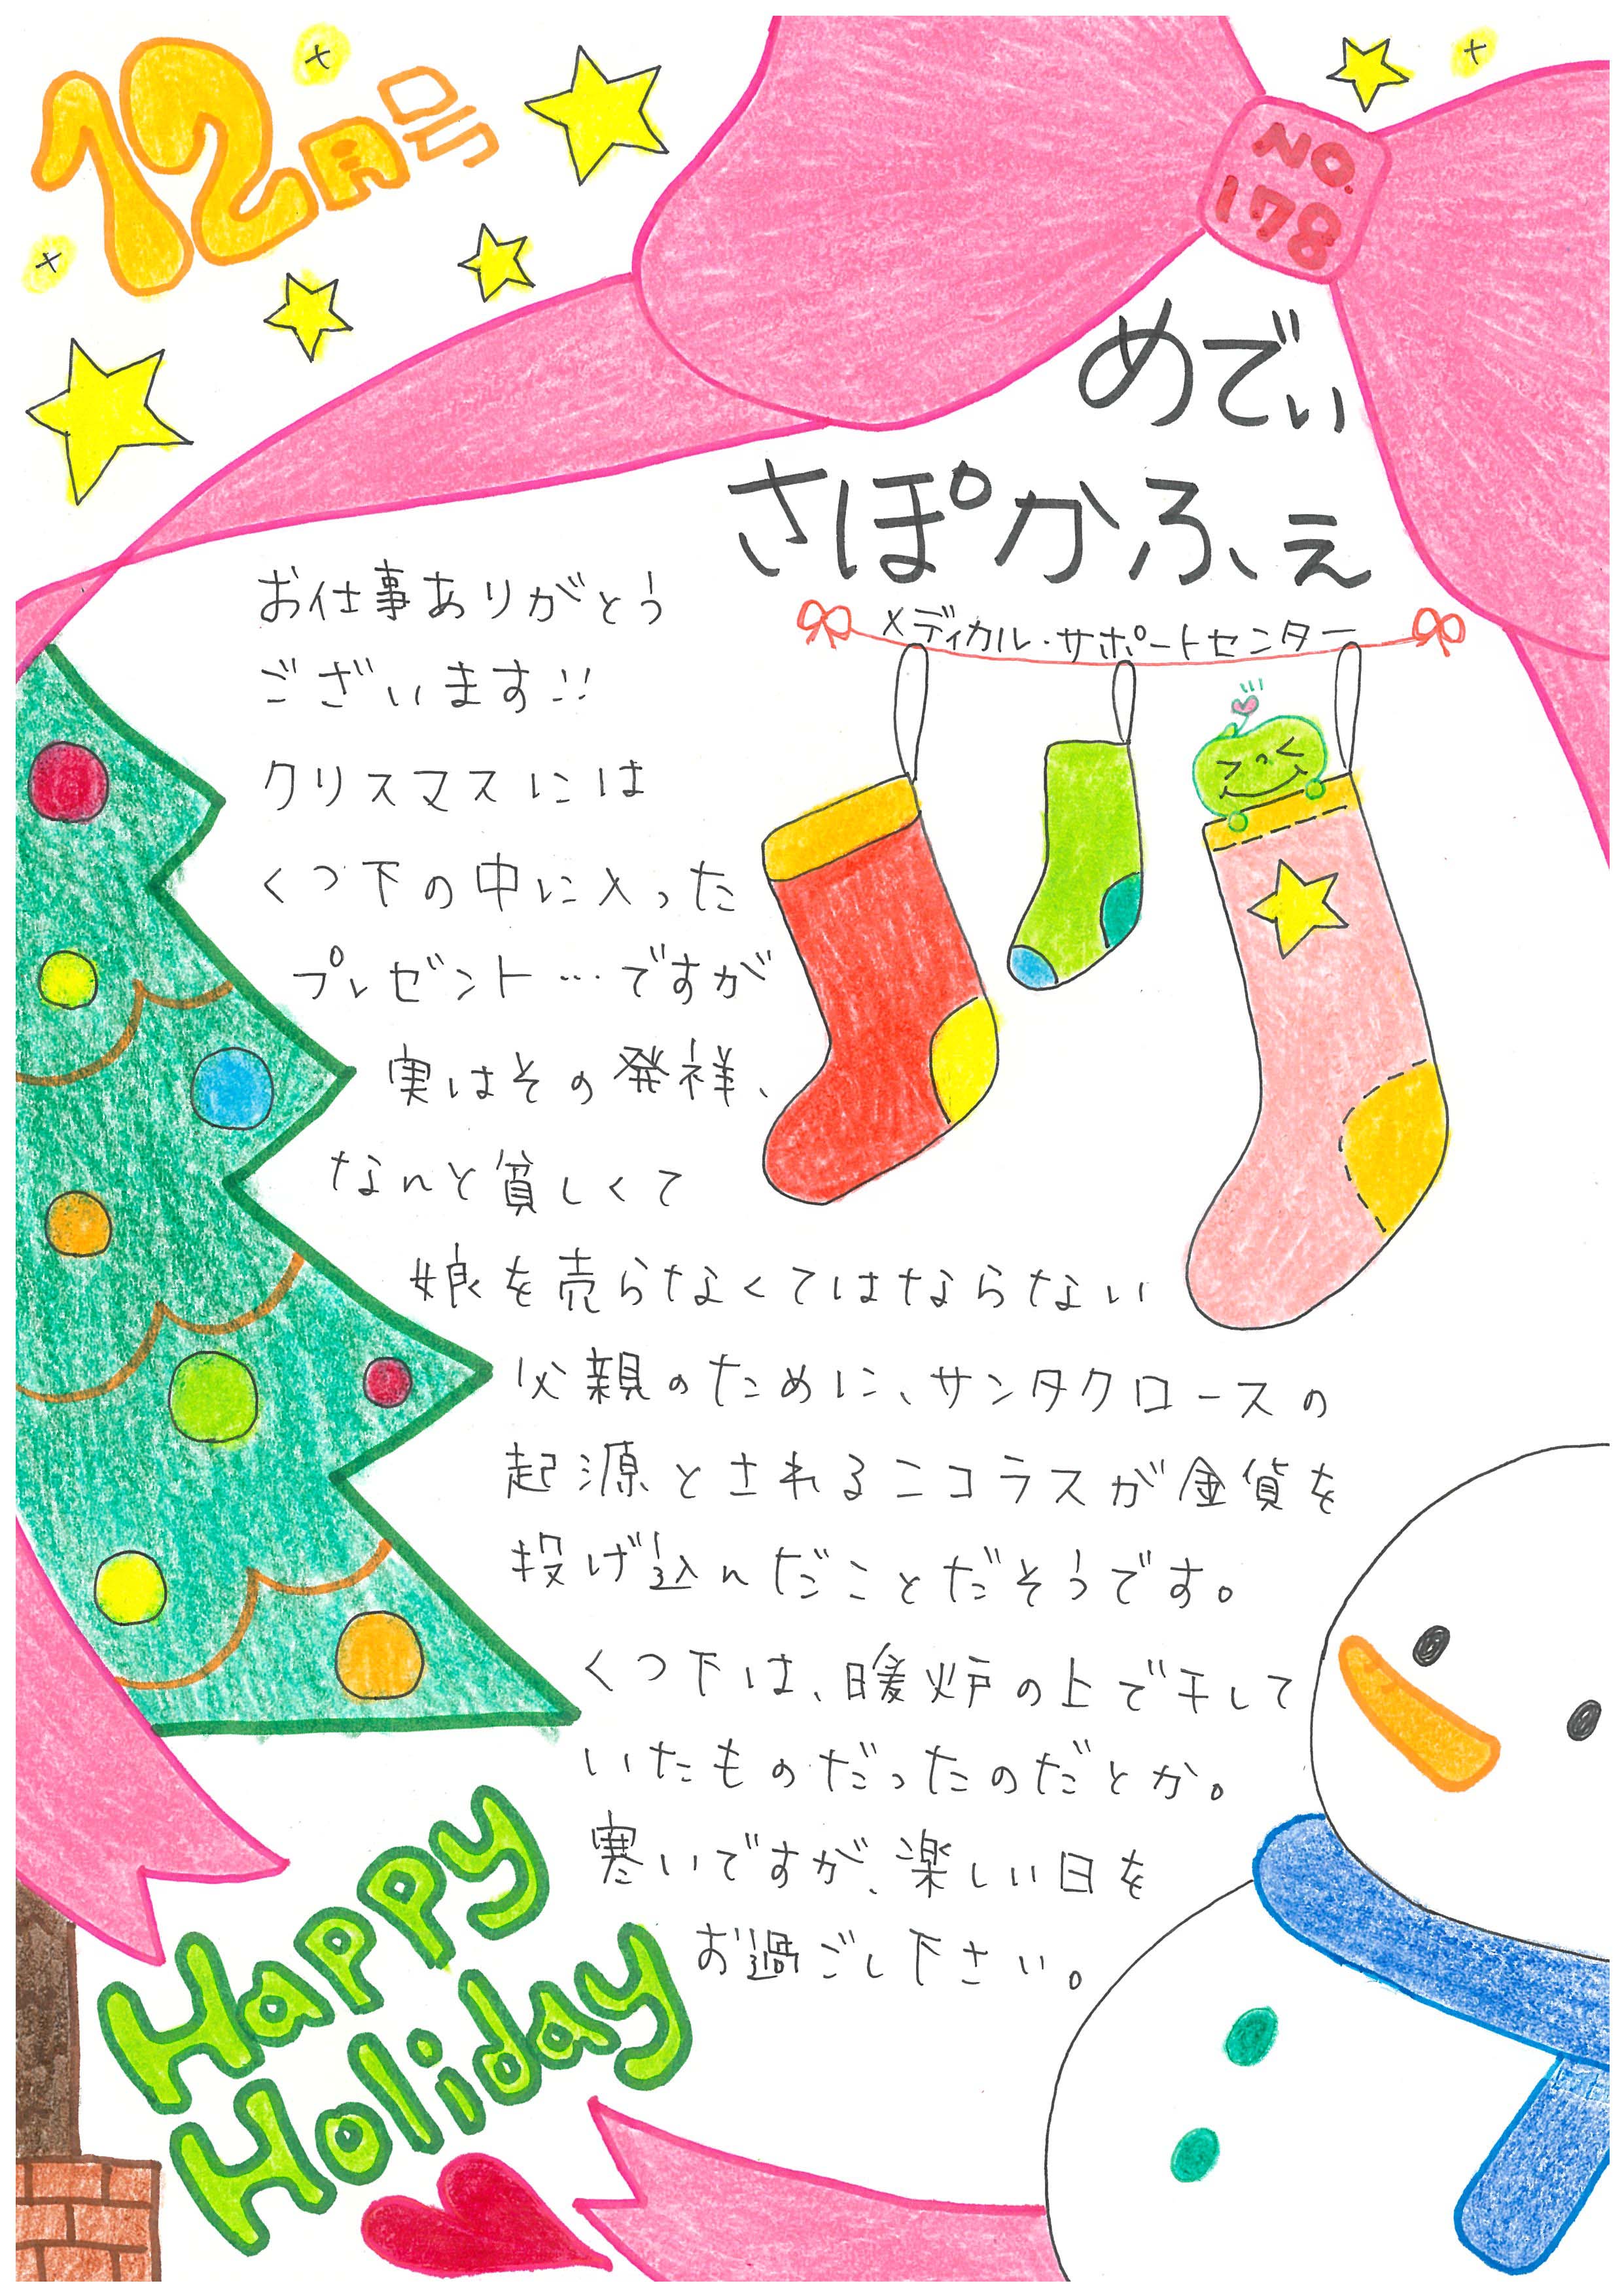 12月号
NO.
178
めでぃ
さぽかふぇ
メディカル・サポートセンター
お仕事ありがとう
ございます!!
クリスマスには
くつ下の中に入った
プレゼント…ですが
実はその発祥、
なんと貧しくて
娘を売らなくてはならない
父親のために、サンタクロースの
起源とされるニコラスが金貨を
投げ込んだことだそうです。
くつ下は、暖炉の上で干して
いたものだったのだとか。
寒いですが、楽しい日を
お過ごし下さい。
Happy
Holiday